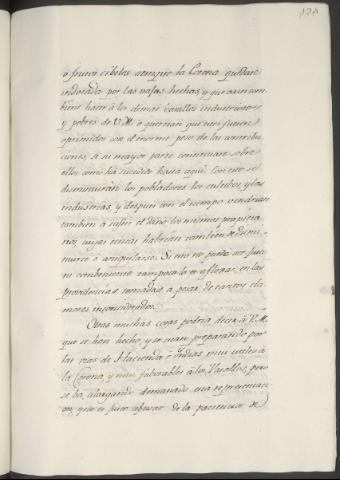 o fueren aunque la Corona quedase
indotada por las ventas hechas, y que aun con
bien hacer á los demas vasallos industriosos
y pobres de V.M. o querrian que estos fuesen
oprimidos con el enorme peso de las contribu
ciones, si su mayor parte continuase sobre
ellos como ha sucedido hasta aquí. Con esto se
disminuirán los pobladores, los cultibos, y las
industrias, y despues con el tiempo vendrian
tambien á sufrir el daño los mismos propieta
rios, cuyas rentas habrian tambien de dismi
nuirse ó aniquilarse. Si esto no puede ser justo
ni combeniente tampoco lo es aflojar en las
providencias tomadas á pesar de tantos cla
mores inconsiderados.
Otras muchas cosas podria decir á V.M.
que se han hecho, y se iban preparando por
las vias de Hacienda é Indias mui utiles á
la Corona, y mui faborables á los Vasallos, pero
se ba alargando demasiado esta representaci
on, que es justo abusar de la paciencia de